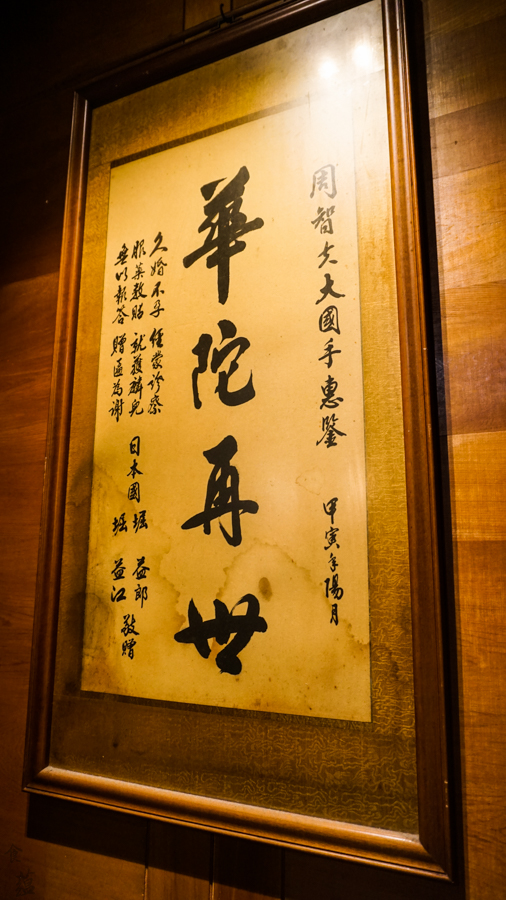 周智夫大國手惠鑒 甲寅年陽月
華陀再世
久婚不孕 任蒙診察
服英教貼 就獲麟兒
無以報答 贈匾為謝
日本國 堀 益郎
堀 益江 敬贈